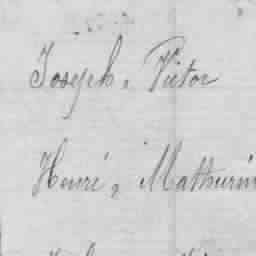 Joseph, Victor
Henri, Mathurin